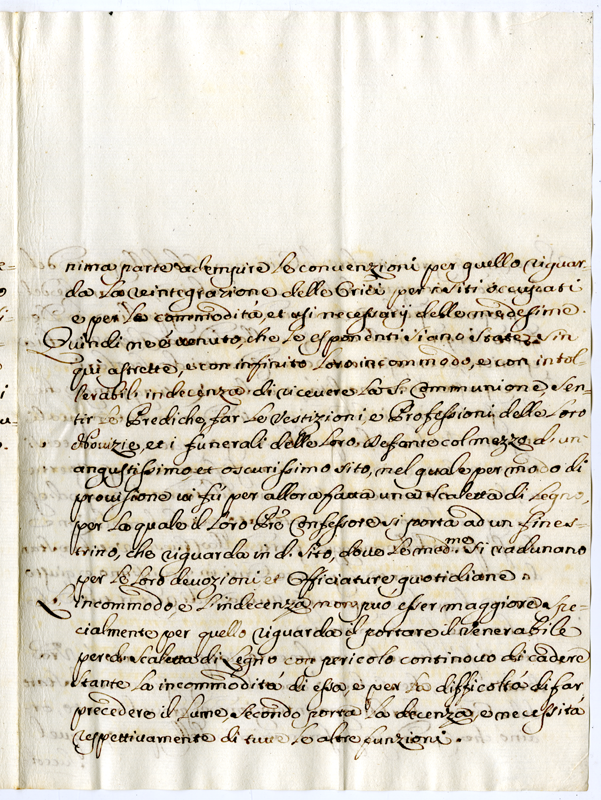 nima parte adempire le convenzioni per quello riguar=
da la reintegrazione delle Crici per i siti occupati
e per le commodità, et usi necessarij delle medesime.
Quindi ne è venuto, che le esponenti siano state sin
quì astrette, e con infinito loro incommodo, e con intol=
lerabili indecenze di ricevere la S. Communione, sen=
tir le Prediche, far le Vestizioni, e Professioni delle loro
Novizie, et i funerali delle loro Defonte col mezzo di un
angustissimo et oscurissimo sito, nel quale per modo di
provisione vi fù per allora fatta una scaletta di legno,
per la quale il loro Prē Confessore si porta ad un fines=
trino, che riguarda in di. sito, dove le med.me si radunano
per le loro devozioni et Officiature quotidiane
L'incommodo, e l'indecenza non può esser maggiore, spe=
cialmente per quello riguarda il portare il Venerabile
per da scaletta di legno con pericolo continovo di cadere
stante la incommodità di essa, e per la difficoltà di far
precedere il lume secondo porta la decenza, e necessità
respettivamente di tutte le altre funzioni.